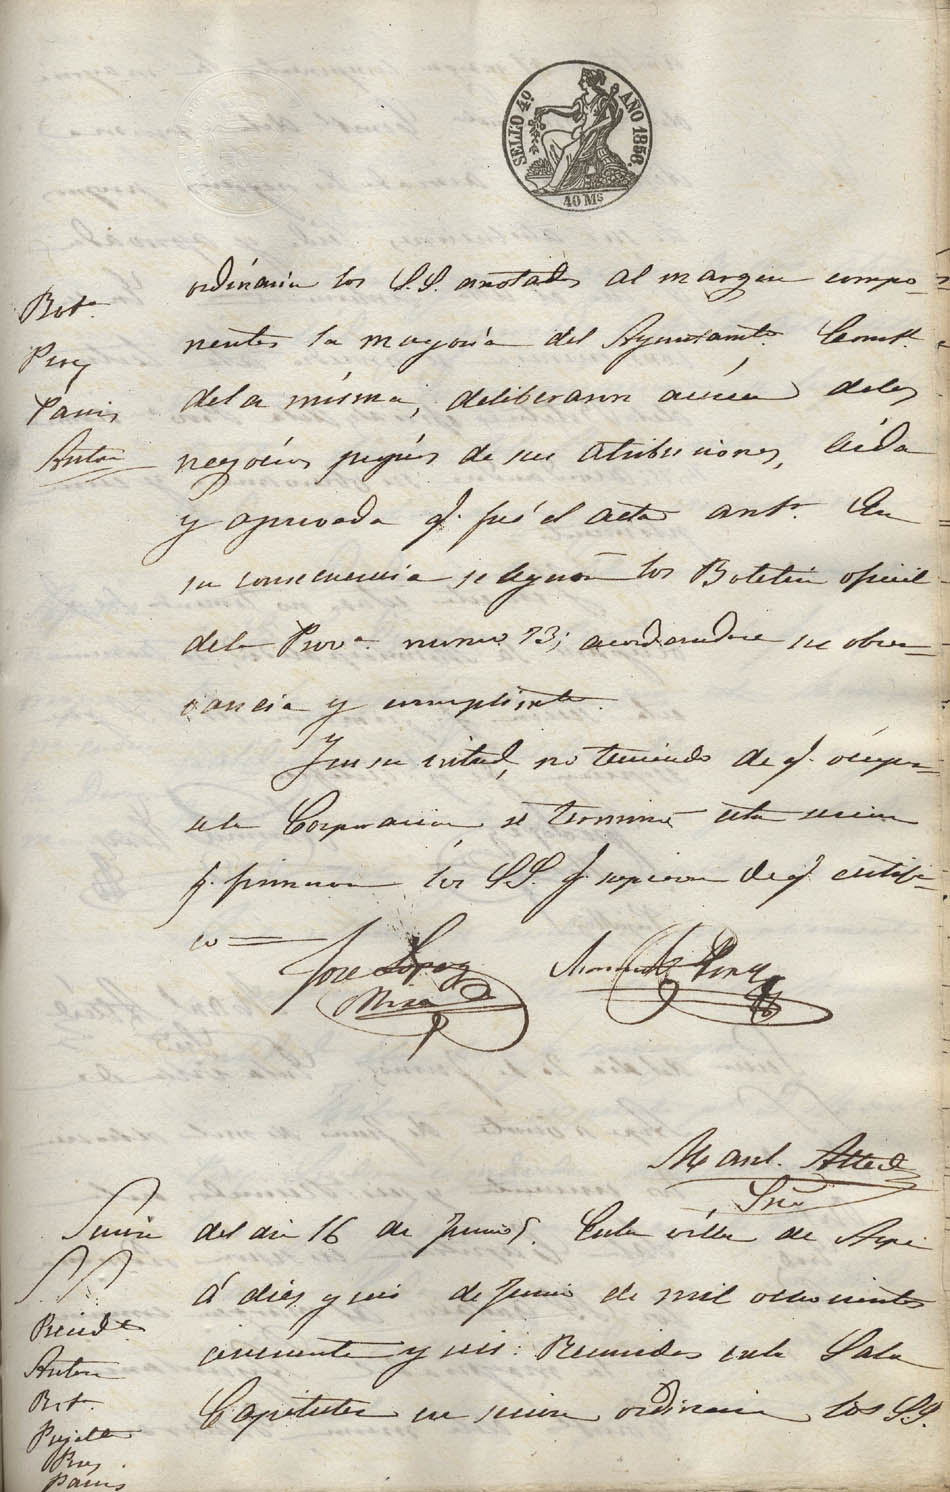 SELLO 4º AÑO 1856.
40 Ms
ordinaria los S.S. anotados al margen compo-
nentes la mayoria del Ayuntamto. Const.
dela misma, deliberaron acerca delos
negócios propios de sus atribuciones, leida
y aprovada q. fué el acta antr. En
su consecuencia se leyeron los Boletin oficial
dela Prova. numo 73; acordandose su obser-
vancia y cumplimto.
Y en su virtud, no teniendo de q. ocupar-
se la Corporacion, se terminó esta sesion
q. firmaron los SS. q. supieron de q. certifi-
co =
Bota.
Perez
Pania
Anton
Jose Lopez
Perez
Manl. Alted
Srio
Sesion del dia 16 de Junio. Enla villa de Aspe
á diez y seis de Junio de mil ochocientos
cincuenta y seis: Reunidos enla Sala
Capitular en sesion ordinaria los SS.
SS
Presidte
Anton
Bot.
Pujalte
Pania